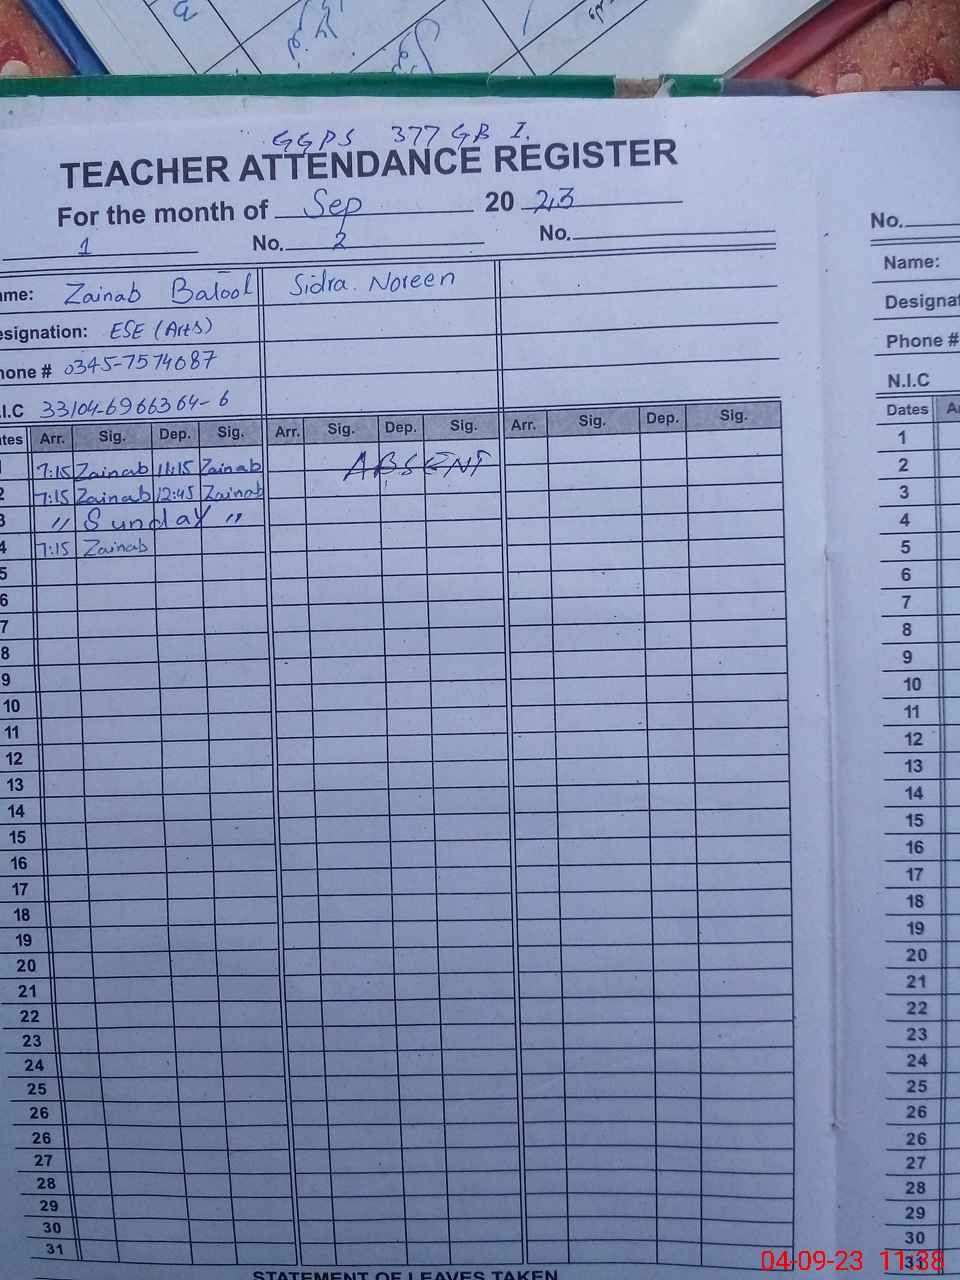 GGPS 377 GB I.
TEACHER ATTENDANCE REGISTER
For the month of Sep 2023
1 No. 2 No.
ame: Zainab Batool Sidra. Noreen
esignation: ESE (Arts)
hone # 0345-7574687
.I.C 33104-6966364-6
ates Arr. Sig. Dep. Sig. Arr. Sig. Dep. Sig. Arr. Sig. Dep. Sig.
1 7:15 Zainab 11:15 Zainab ABSENT
2 7:15 Zainab 12:45 Zainab
3 " Sunday "
4 7:15 Zainab
5
6
7
8
9
10
11
12
13
14
15
16
17
18
19
20
21
22
23
24
25
26
26
27
28
29
30
31
STATEMENT OF LEAVES TAKEN
No.
Name:
Designat
Phone #
N.I.C
Dates
1
2
3
4
5
6
7
8
9
10
11
12
13
14
15
16
17
18
19
20
21
22
23
24
25
26
26
27
28
29
30
31
04-09-23 11:38